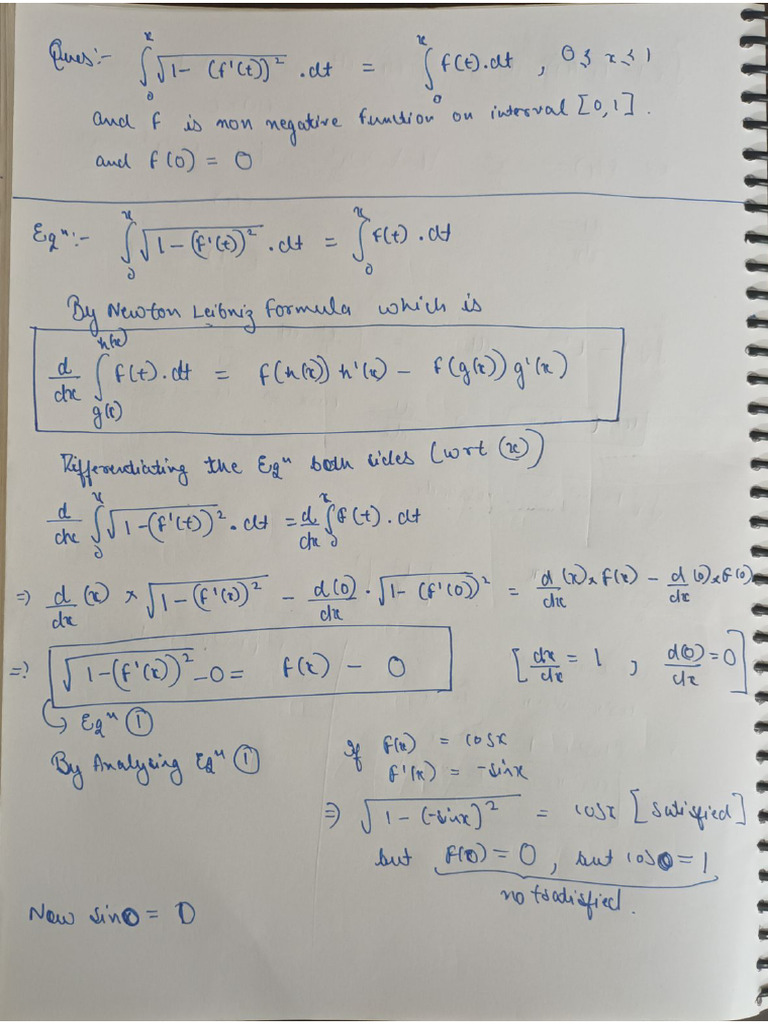 Ques:- ∫₀ˣ √(1- (f'(t))²) .dt = ∫₀ˣ f(t).dt , 0 ≤ x ≤ 1
and f is non negative function on interval [0,1].
and f(0) = 0
Eqⁿ:- ∫₀ˣ √(1-(f'(t))²) .dt = ∫₀ˣ f(t) .dt
By Newton Leibniz formula which is
d/dx ∫_{g(x)}^{h(x)} f(t).dt = f(h(x)) h'(x) - f(g(x)) g'(x)
Differendiating the Eqⁿ both sides (wrt (x))
d/dx ∫₀ˣ √(1-(f'(t))²) .dt = d/dx ∫₀ˣ f(t) .dt
⇒ d/dx (x) × √(1-(f'(x))²) - d(0)/dx . √(1- (f'(0))²) = d(x)/dx × f(x) - d(0)/dx × f(0)
⇒ √(1-(f'(x))²) -0 = f(x) - 0 [dx/dx = 1 , d(0)/dx = 0]
↳ Eqⁿ ①
By Analysing Eqⁿ ①
If f(x) = cosx
f'(x) = -sinx
⇒ √(1-(-sinx)²) = cosx [satisfied]
but f(0) = 0 , but cos0 = 1
not satisfied.
Now sin0 = 0